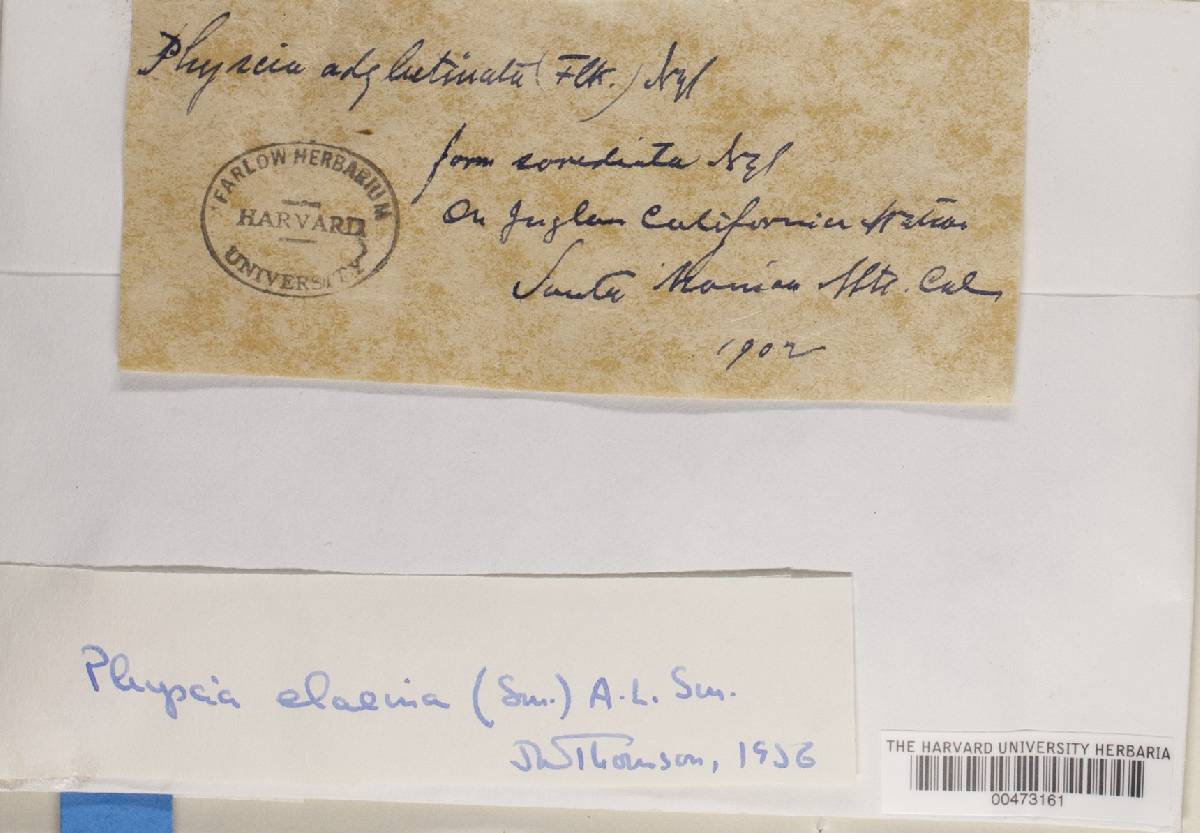 Physcia adglutinata (Flk.) Nyl
form sorediata Nyl
On Juglans Californica Watson
Santa Monica Mts. Cal
1902
FARLOW HERBARIUM
HARVARD
UNIVERSITY
Physcia elaeina (Sm.) A.L. Sm.
JWThomson, 1956
THE HARVARD UNIVERSITY HERBARIA
00473161